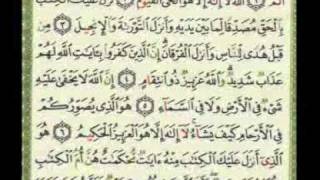 الٓمٓ ١ ٱللَّهُ لَآ إِلَٰهَ إِلَّا هُوَ ٱلْحَىُّ ٱلْقَيُّومُ ٢ نَزَّلَ عَلَيْكَ ٱلْكِتَٰبَ
بِٱلْحَقِّ مُصَدِّقًا لِّمَا بَيْنَ يَدَيْهِ وَأَنزَلَ ٱلتَّوْرَىٰةَ وَٱلْإِنجِيلَ ٣
مِن قَبْلُ هُدًى لِّلنَّاسِ وَأَنزَلَ ٱلْفُرْقَانَ إِنَّ ٱلَّذِينَ كَفَرُوا۟ بِـَٔايَٰتِ ٱللَّهِ لَهُمْ
عَذَابٌ شَدِيدٌ وَٱللَّهُ عَزِيزٌ ذُو ٱنتِقَامٍ ٤ إِنَّ ٱللَّهَ لَا يَخْفَىٰ عَلَيْهِ
شَىْءٌ فِى ٱلْأَرْضِ وَلَا فِى ٱلسَّمَآءِ ٥ هُوَ ٱلَّذِى يُصَوِّرُكُمْ
فِى ٱلْأَرْحَامِ كَيْفَ يَشَآءُ لَآ إِلَٰهَ إِلَّا هُوَ ٱلْعَزِيزُ ٱلْحَكِيمُ ٦
هُوَ ٱلَّذِىٓ أَنزَلَ عَلَيْكَ ٱلْكِتَٰبَ مِنْهُ ءَايَٰتٌ مُّحْكَمَٰتٌ هُنَّ أُمُّ ٱلْكِتَٰبِ